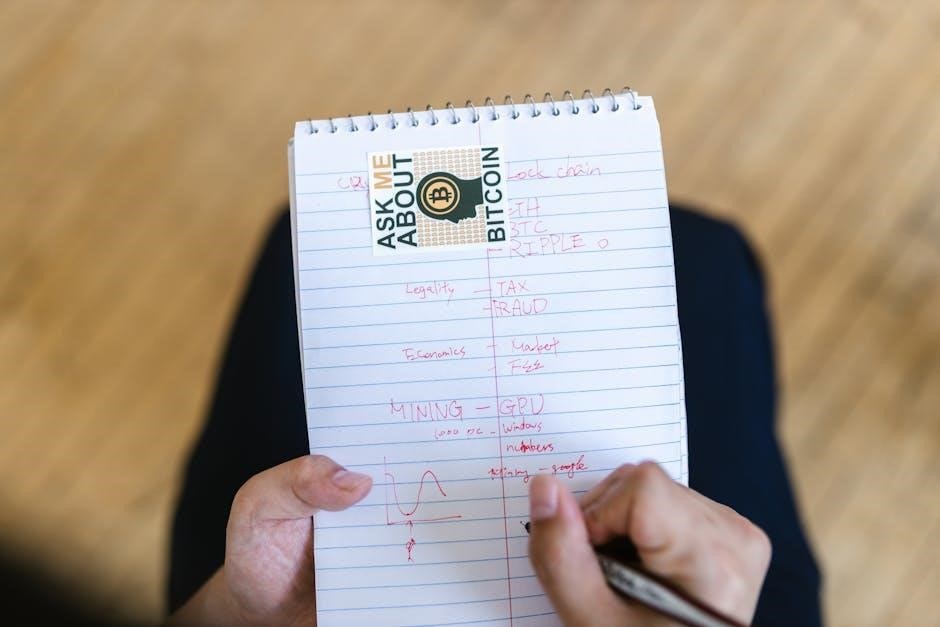 ASK ME
ABOUT
BITCOIN
lock chain
ETH
BTC
RIPPLE
Legality – TAX
– FRAUD
Economics – Market
– FEE
MINING — GPU
1000 PC - Windows
numbers
Mining - google